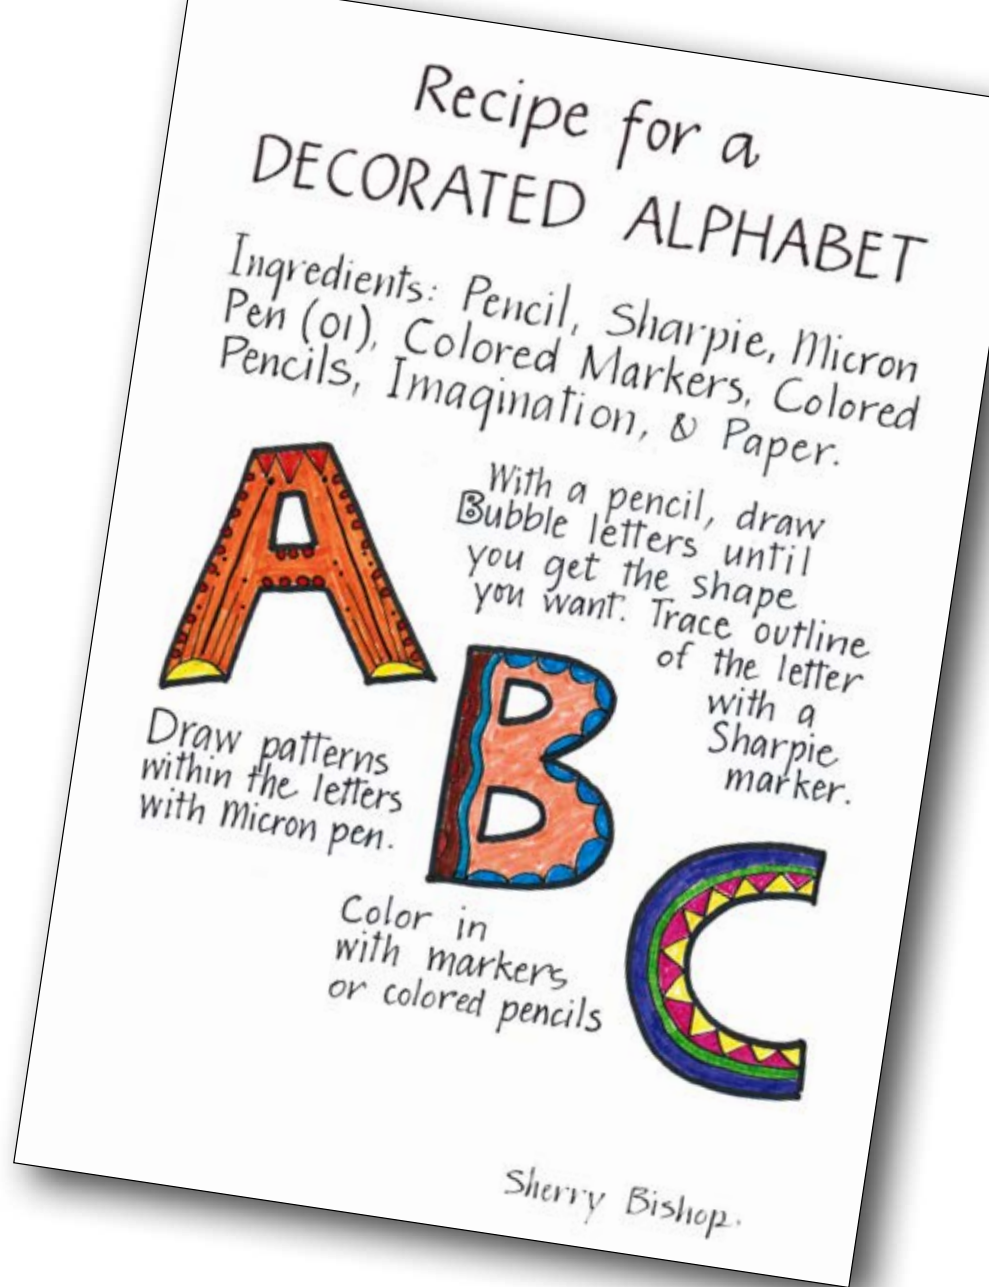 Recipe for a
DECORATED ALPHABET
Ingredients: Pencil, Sharpie, Micron
Pen (01), Colored Markers, Colored
Pencils, Imagination, & Paper.
A
With a pencil, draw
Bubble letters until
you get the shape
you want. Trace outline
of the letter
with a
Sharpie
marker.
B
Draw patterns
within the letters
with Micron pen.
C
Color in
with markers
or colored pencils
Sherry Bishop.